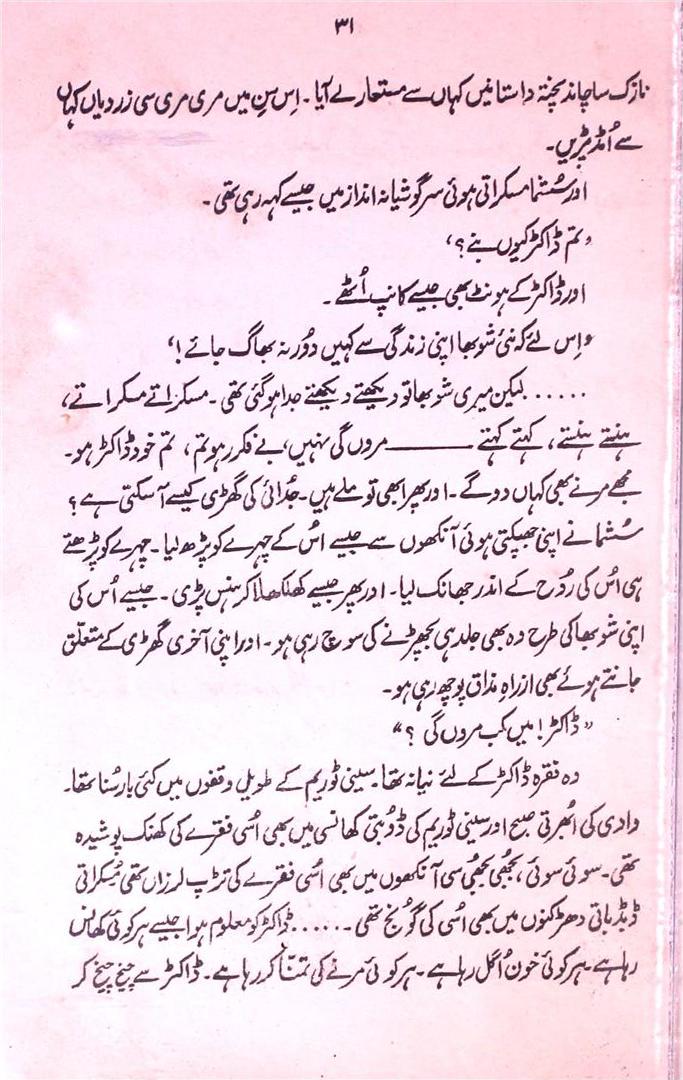 ۳۱
نازک سا چاند پختہ داستانیں کہاں سے مستعار لے آیا۔ اِس سِن میں مری مری سی زردیاں کہاں
سے اُمڈ پڑیں۔
اور سُشما مسکراتی ہوئی سرگوشیانہ انداز میں جیسے کہہ رہی تھی۔
’تم ڈاکٹر کیوں بنے؟‘
اور ڈاکٹر کے ہونٹ بھی جیسے کانپ اُٹھے۔
’اِس لئے کہ نئی شوبھا اپنی زندگی سے کہیں دُور نہ بھاگ جائے!‘
..... لیکن میری شوبھا تو دیکھتے دیکھتے جدا ہوگئی تھی۔ مسکراتے مسکراتے،
ہنستے ہنستے، کہتے کہتے ——— مروں گی نہیں، بے فکر رہو تم، تم خود ڈاکٹر ہو۔
مجھے مرنے بھی کہاں دوگے۔ اور پھر ابھی تو ملے ہیں۔ جُدائی کی گھڑی کیسے آسکتی ہے؟
سُشما نے اپنی جھپکتی ہوئی آنکھوں سے جیسے اُس کے چہرے کو پڑھ لیا۔ چہرے کو پڑھتے
ہی اُس کی رُوح کے اندر جھانک لیا۔ اور پھر جیسے کھلکھلا کر ہنس پڑی۔ جیسے اُس کی
اپنی شوبھا کی طرح وہ بھی جلد ہی بچھڑنے کی سوچ رہی ہو۔ اور اپنی آخری گھڑی کے متعلّق
جانتے ہوئے بھی ازراہِ مذاق پوچھ رہی ہو۔
”ڈاکٹر! میں کب مروں گی؟“
وہ فقرہ ڈاکٹر کے لئے نیا نہ تھا۔ سینی ٹوریم کے طویل وقفوں میں کئی بار سُنا تھا۔
وادی کی اُبھرتی صبح اور سینی ٹوریم کی ڈوبتی کھانسی میں بھی اُسی فقرے کی کھنک پوشیدہ
تھی۔ سوئی سوئی، بجھی بجھی سی آنکھوں میں بھی اُسی فقرے کی تڑپ لرزاں تھی مُسکراتی
ڈبڈباتی دھڑکنوں میں بھی اُسی کی گونج تھی۔..... ڈاکٹر کو معلوم ہوا جیسے ہر کوئی کھانس
رہا ہے۔ ہر کوئی خون اُگل رہا ہے۔ ہر کوئی مرنے کی تمنّا کر رہا ہے۔ ڈاکٹر سے چیخ چیخ کر